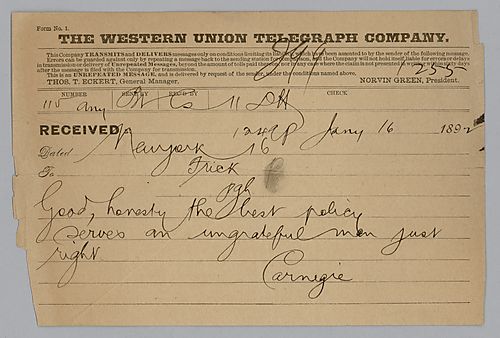 Form No. 1.
THE WESTERN UNION TELEGRAPH COMPANY.
This Company TRANSMITS and DELIVERS messages only on conditions limiting its liability, which have been assented to by the sender of the following message.
Errors can be guarded against only by repeating a message back to the sending station for comparison, and the Company will not hold itself liable for errors or delays
in transmission or delivery of Unrepeated Messages, beyond the amount of tolls paid thereon, nor in any case where the claim is not presented in writing within sixty days
after the message is filed with the Company for transmission.
This is an UNREPEATED MESSAGE, and is delivered by request of the sender, under the conditions named above.
THOS. T. ECKERT, General Manager. NORVIN GREEN, President.
255
NUMBER SENT BY REC'D BY CHECK
110 any 11 DH
RECEIVED 1249P Jany 16 1892
Dated Newyork 16
To Frick
pgh
Good, honesty the best policy
serves an ungrateful man just
right
Carnegie